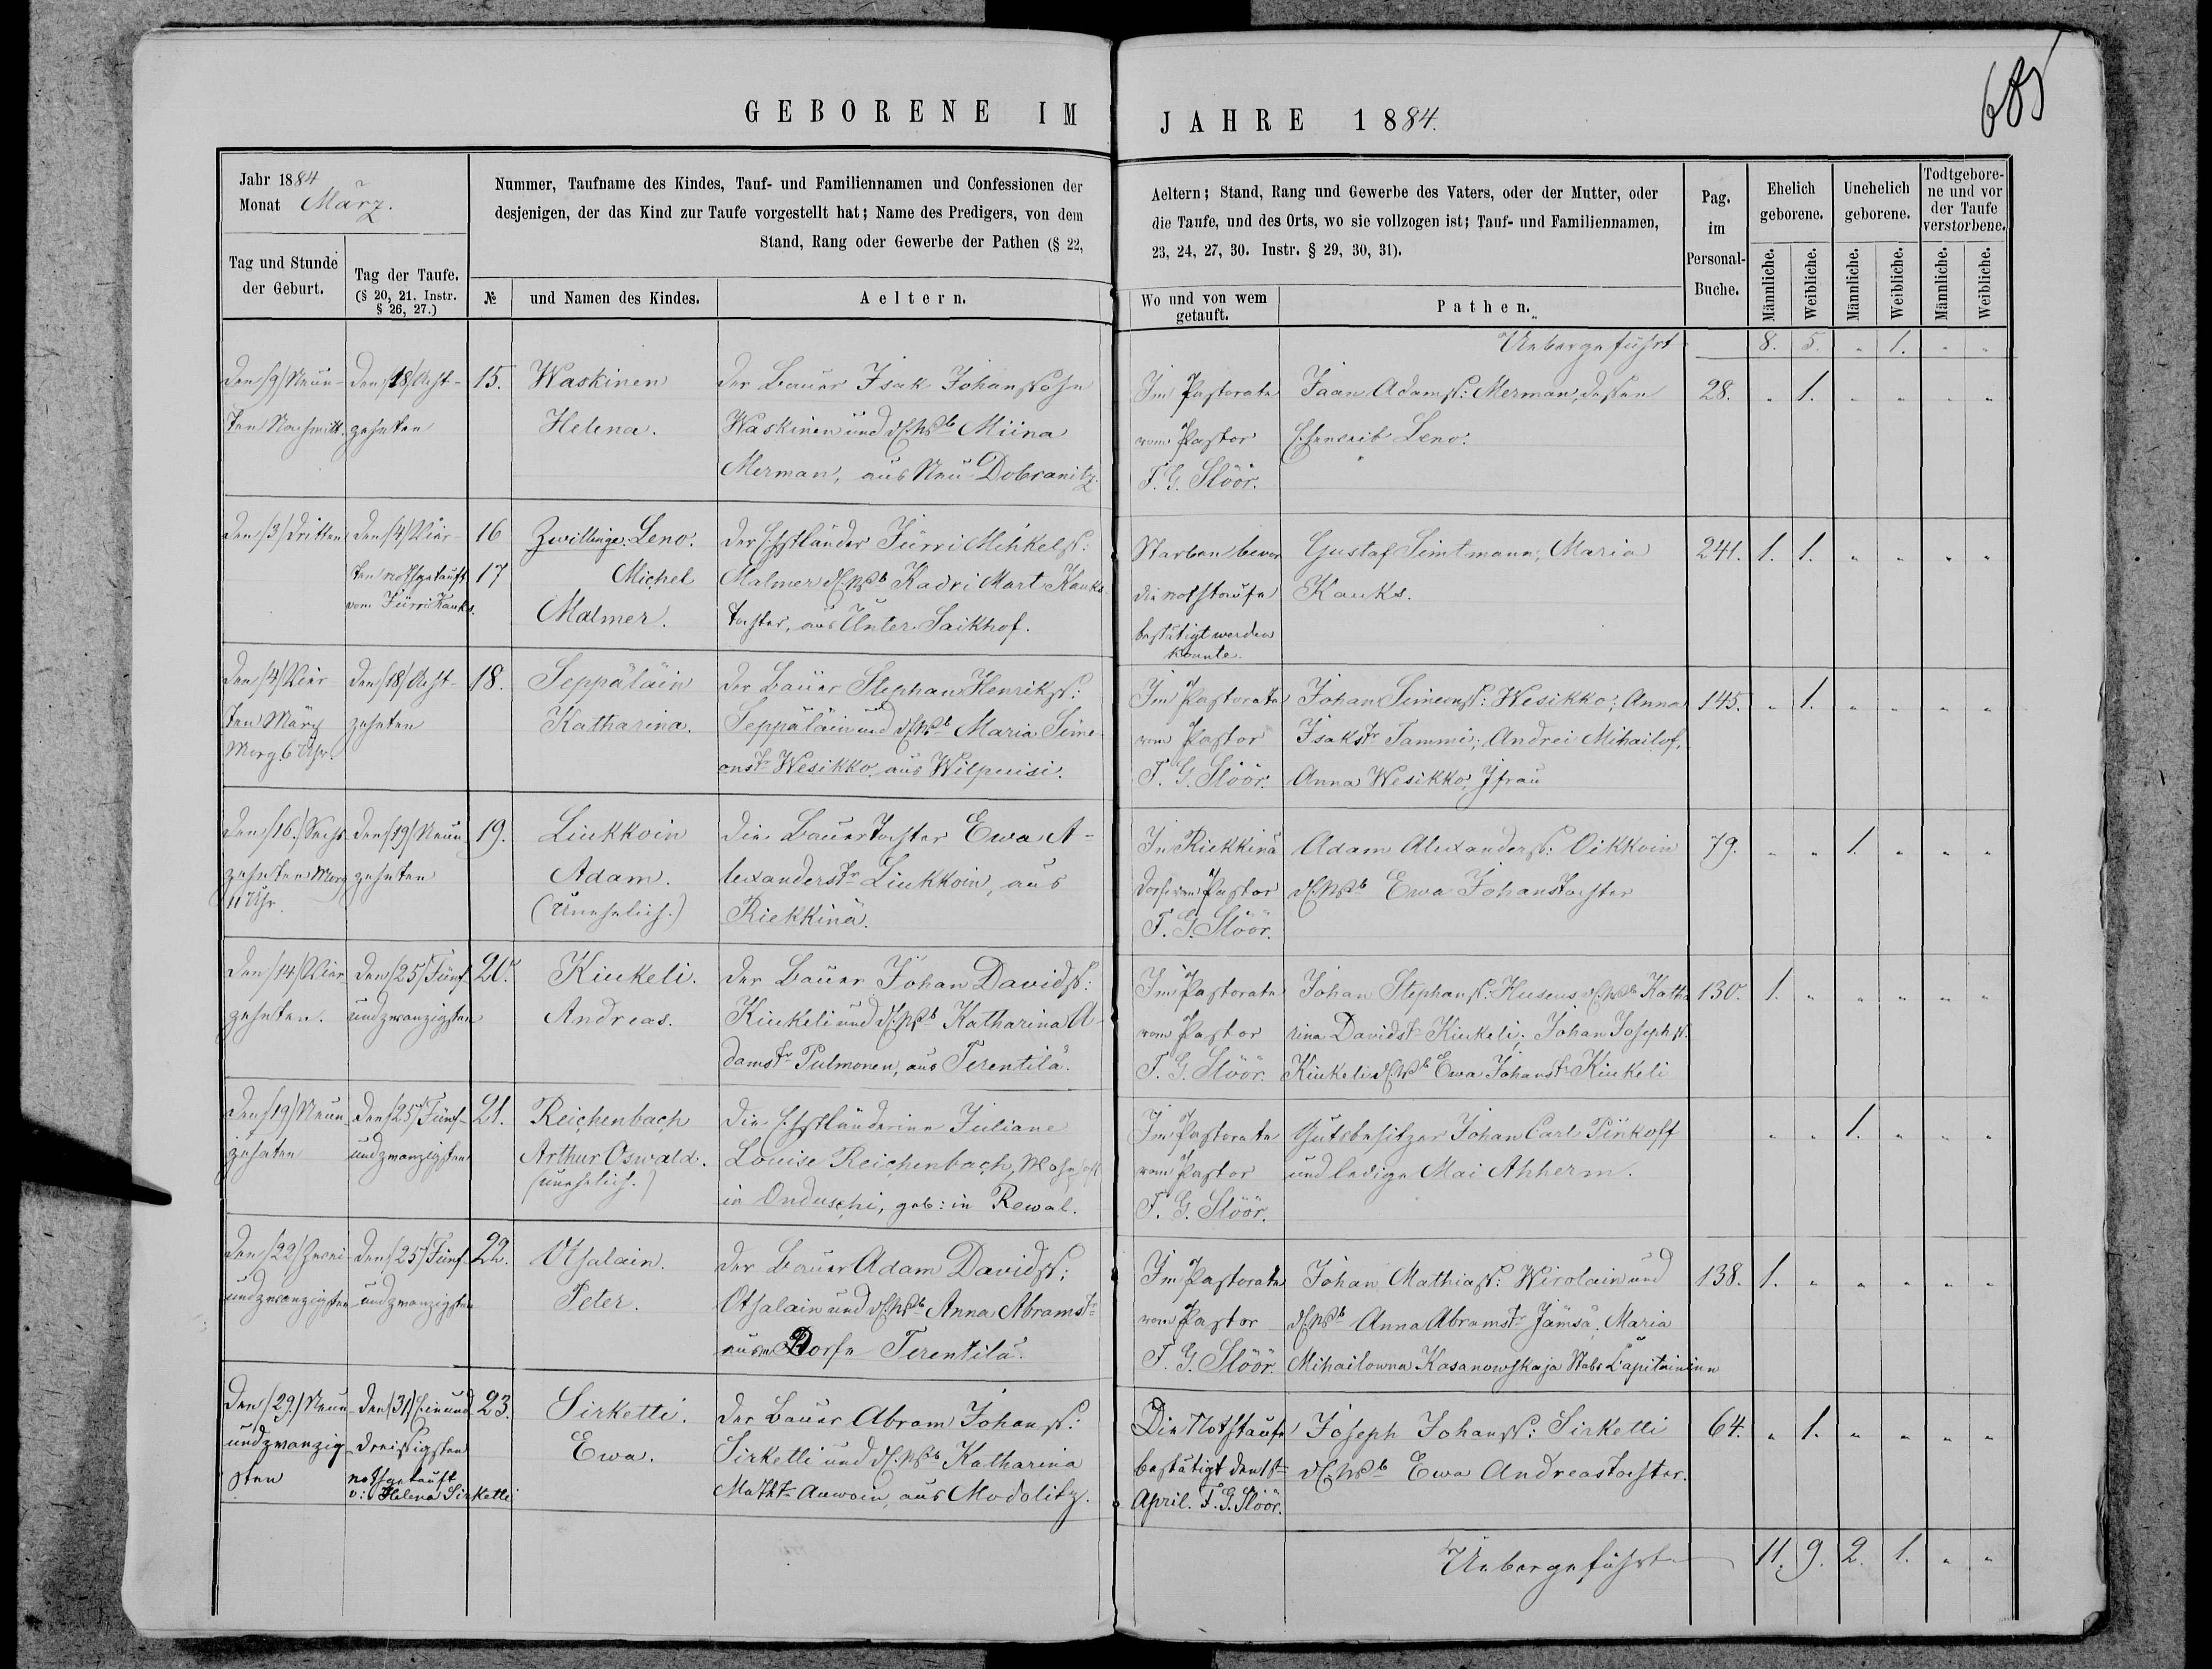 685
GEBORENE IM JAHRE 1884.
Jahr 1884
Monat März.
Nummer, Taufname des Kindes, Tauf- und Familiennamen und Confessionen der
desjenigen, der das Kind zur Taufe vorgestellt hat; Name des Predigers, von dem
Stand, Rang oder Gewerbe der Pathen (§ 22,
Aeltern; Stand, Rang und Gewerbe des Vaters, oder der Mutter, oder
die Taufe, und des Orts, wo sie vollzogen ist; Tauf- und Familiennamen,
23, 24, 27, 30. Instr. § 29, 30, 31).
Tag und Stunde
der Geburt.
Tag der Taufe.
(§ 20, 21. Instr.
§ 26, 27.)
№
und Namen des Kindes.
Aeltern.
Wo und von wem
getauft.
Pathen.
Pag.
im
Personal-
Buche.
Ehelich
geborene.
Unehelich
geborene.
Todtgebore-
ne und vor
der Taufe
verstorbene.
Männliche.
Weibliche.
Männliche.
Weibliche.
Männliche.
Weibliche.
Uebergeführt 8. 5. " 1. " "
den /9/ Neun-
ten Nachmitt.
den /18/ Acht-
zehnten
15.
Waskinen
Helena.
der Bauer Isak Johanssohn
Waskinen und Miina
Merman, aus Neu-Dobranitz.
Im Pastorate
vom Pastor
F. G. Slöör.
Jaan Adams: Merman, dessen
Leno.
28. " 1. " " " "
den /3/ dritten
den /4/ Vier-
ten nothgetauft
vom Jürri Kauks.
16
17
Zwillinge: Leno.
Michel
Malmer.
der Ehstländer Jürri Mihkels:
Malmer Kadri Mart Kauks
tochter, aus Unter-Saikhof.
Starben bevor
die nothtaufe
bestätigt werden
konnte.
Gustaf Simtmann, Maria
Kauks.
241. 1. 1. " " " "
den /4/ Vier
ten März
Morg. 6 Uhr.
den /18/ Acht-
zehnten
18.
Seppäläin
Katharina.
der Bauer Stephan Henriks:
Seppäläin und Maria Sime-
onstr Wesikko aus Wilpuisi.
Im Pastorate
vom Pastor
F. G. Slöör.
Johan Simeons: Wesikko; Anna
Isakstr Tammi; Andrei Mihailof,
Anna Wesikko, Jfrau
145. " 1. " " " "
den /16./ Sechs
zehnten Morg
11 Uhr.
den /19/ Neun
zehnten
19.
Liukkoin
Adam.
(Unehelich.)
die Bauertochter Ewa A-
lexanderstr Liukkoin, aus
Riekkinä.
In Riekkinä
Dorfe vom Pastor
F. G. Slöör.
Adam Alexanders: Oikkoin
Ewa Johanstochter
79. " " 1. " " "
den /14/ Vier
zehnten.
den /25/ Fünf-
undzwanzigsten
20.
Kiukeli.
Andreas.
der Bauer Johan Davids:
Kiukeli und Katharina A-
damstr Pulmonen, aus Terentilä.
Im Pastorate
vom Pastor
F. G. Slöör.
Johan Stephans: Huseus Katha
rina Davidstr Kiukeli; Johan Josephs.
Kiukeli Ewa Johanstr Kiukeli
130. 1. " " " " "
den /19/ Neun-
zehnten
den /25/ Fünf-
undzwanzigsten
21.
Reichenbach
Arthur Oswald.
(unehelich.)
die Ehstländerinn Juliane
Louise Reichenbach, wohnhaft
in Onduschi, geb: in Rewal.
Im Pastorate
vom Pastor
F. G. Slöör.
Gutsbesitzer Johan Carl Pinkoff
und ledige Mai Ahherm.
" " 1. " " "
den /22/ Zwei-
undzwanzigsten
den /25/ Fünf-
undzwanzigsten
22.
Otsalain.
Peter.
der Bauer Adam Davids:
Otsalain und Anna Abramstr
aus'm Dorfe Terentilä.
Im Pastorate
vom Pastor
F. G. Slöör.
Johan Mathias: Wirolain und
Anna Abramstr Jämsä, Maria
Mihailowna Kasanowskaja Stabs Capitaininn
138. 1. " " " " "
den /29./ Neun
undzwanzig-
sten
den /31./ Einund
dreissigsten
nothgetauft
v: Helena Sirketti
23.
Sirketti.
Ewa.
der Bauer Abram Johans:
Sirketti und Katharina
Math. Auwoin, aus Modolitz.
Die Nothtaufe
bestätigt den 1st
April. F. G. Slöör.
Joseph Johans: Sirketti
Ewa Andreastochter.
64. " 1. " " " "
Uebergeführt 11. 9. 2. 1. " "